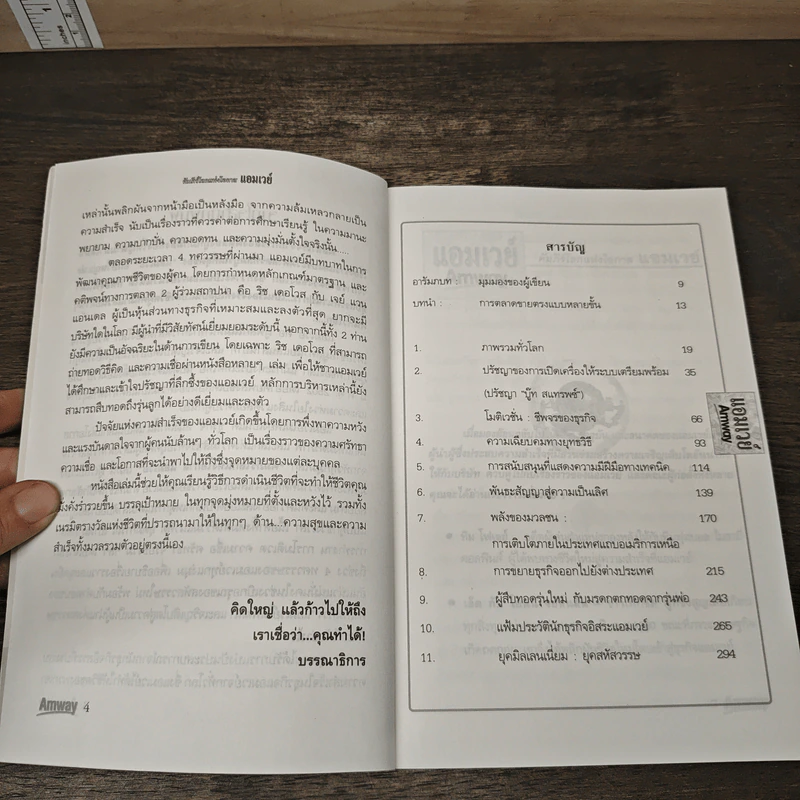 แอมเวย์
เหล่านั้นพลิกผันจากหน้ามือเป็นหลังมือ จากความล้มเหลวกลายเป็น
ความสำเร็จ นับเป็นเรื่องราวที่ควรค่าต่อการศึกษาเรียนรู้ ในความมานะ
พยายาม ความบากบั่น ความอดทน และความมุ่งมั่นตั้งใจจริงนั้น....
ตลอดระยะเวลา 4 ทศวรรษที่ผ่านมา แอมเวย์มีบทบาทในการ
พัฒนาคุณภาพชีวิตของผู้คน โดยการกำหนดหลักเกณฑ์มาตรฐาน และ
คติพจน์ทางการตลาด 2 ผู้ร่วมสถาปนา คือ ริช เดอโวส กับ เจย์ แวน
แอนเดล ผู้เป็นหุ้นส่วนทางธุรกิจที่เหมาะสมและลงตัวที่สุด ยากจะมี
บริษัทใดในโลก มีผู้นำที่มีวิสัยทัศน์เยี่ยมยอมระดับนี้ นอกจากนี้ทั้ง 2 ท่าน
ยังมีความเป็นอัจฉริยะในด้านการเขียน โดยเฉพาะ ริช เดอโวส ที่สามารถ
ถ่ายทอดวิธีคิด และความเชื่อผ่านหนังสือหลายๆ เล่ม เพื่อให้ชาวแอมเวย์
ได้ศึกษาและเข้าใจปรัชญาที่ลึกซึ้งของแอมเวย์ หลักการบริหารเหล่านี้ยัง
สามารถสืบทอดถึงรุ่นลูกได้อย่างดีเยี่ยมและลงตัว
ปัจจัยแห่งความสำเร็จของแอมเวย์เกิดขึ้นโดยการพึ่งพาความหวัง
และแรงบันดาลใจจากผู้คนนับล้านๆ ทั่วโลก เป็นเรื่องราวของความศรัทธา
ความเชื่อ และโอกาสที่จะนำพาไปให้ถึงซึ่งจุดหมายของแต่ละบุคคล
หนังสือเล่มนี้ช่วยให้คุณเรียนรู้วิธีการดำเนินชีวิตที่จะทำให้ชีวิตคุณ
มั่งคั่งร่ำรวยขึ้น บรรลุเป้าหมาย ในทุกจุดมุ่งหมายที่ตั้งและหวังไว้ รวมทั้ง
เนรมิตรางวัลแห่งชีวิตที่ปรารถนามาให้ในทุกๆ ด้าน...ความสุขและความ
สำเร็จทั้งมวลรวมตัวอยู่ตรงนี้เอง
คิดใหญ่ แล้วก้าวไปให้ถึง
เราเชื่อว่า...คุณทำได้!
บรรณาธิการ
Amway 4
สารบัญ
อารัมภบท : มุมมองของผู้เขียน 9
บทนำ : การตลาดขายตรงแบบหลายชั้น 13
1. ภาพรวมทั่วโลก 19
2. ปรัชญาของการเปิดเครื่องให้ระบบเตรียมพร้อม 35
(ปรัชญา "บู๊ท สแทรพซ์")
3. โมติเวชั่น : ชีพจรของธุรกิจ 66
4. ความเฉียบคมทางยุทธวิธี 93
5. การสนับสนุนที่แสดงความมีฝีมือทางเทคนิค 114
6. พันธะสัญญาสู่ความเป็นเลิศ 139
7. พลังของมวลชน : 170
การเติบโตภายในประเทศแถบอเมริการเหนือ
8. การขยายธุรกิจออกไปยังต่างประเทศ 215
9. ผู้สืบทอดรุ่นใหม่ กับมรดกตกทอดจากรุ่นพ่อ 243
10. แฟ้มประวัตินักธุรกิจอิสระแอมเวย์ 265
11. ยุคมิลเลนเนี่ยม : ยุคสหัสวรรษ 294
แอมเวย์
Amway
inches
1
2